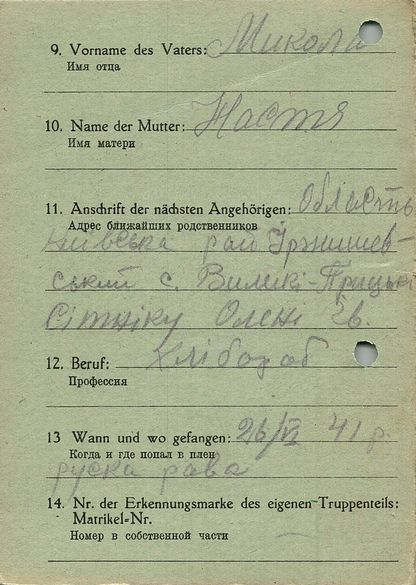 9. Vorname des Vaters: Микола
Имя отца
10. Name der Mutter: Настя
Имя матери
11. Anschrift der nächsten Angehörigen: Область
Адрес ближайших родственников
Київська рай Іржищев-
ський с. Виликі-Прицькі
Сітніку Олені Ів.
12. Beruf: хлібороб
Профессия
13 Wann und wo gefangen: 26/VI 41 р.
Когда и где попал в плен
руска рава
14. Nr. der Erkennungsmarke des eigenen Truppenteils:
Matrikel-Nr.
Номер в собственной части